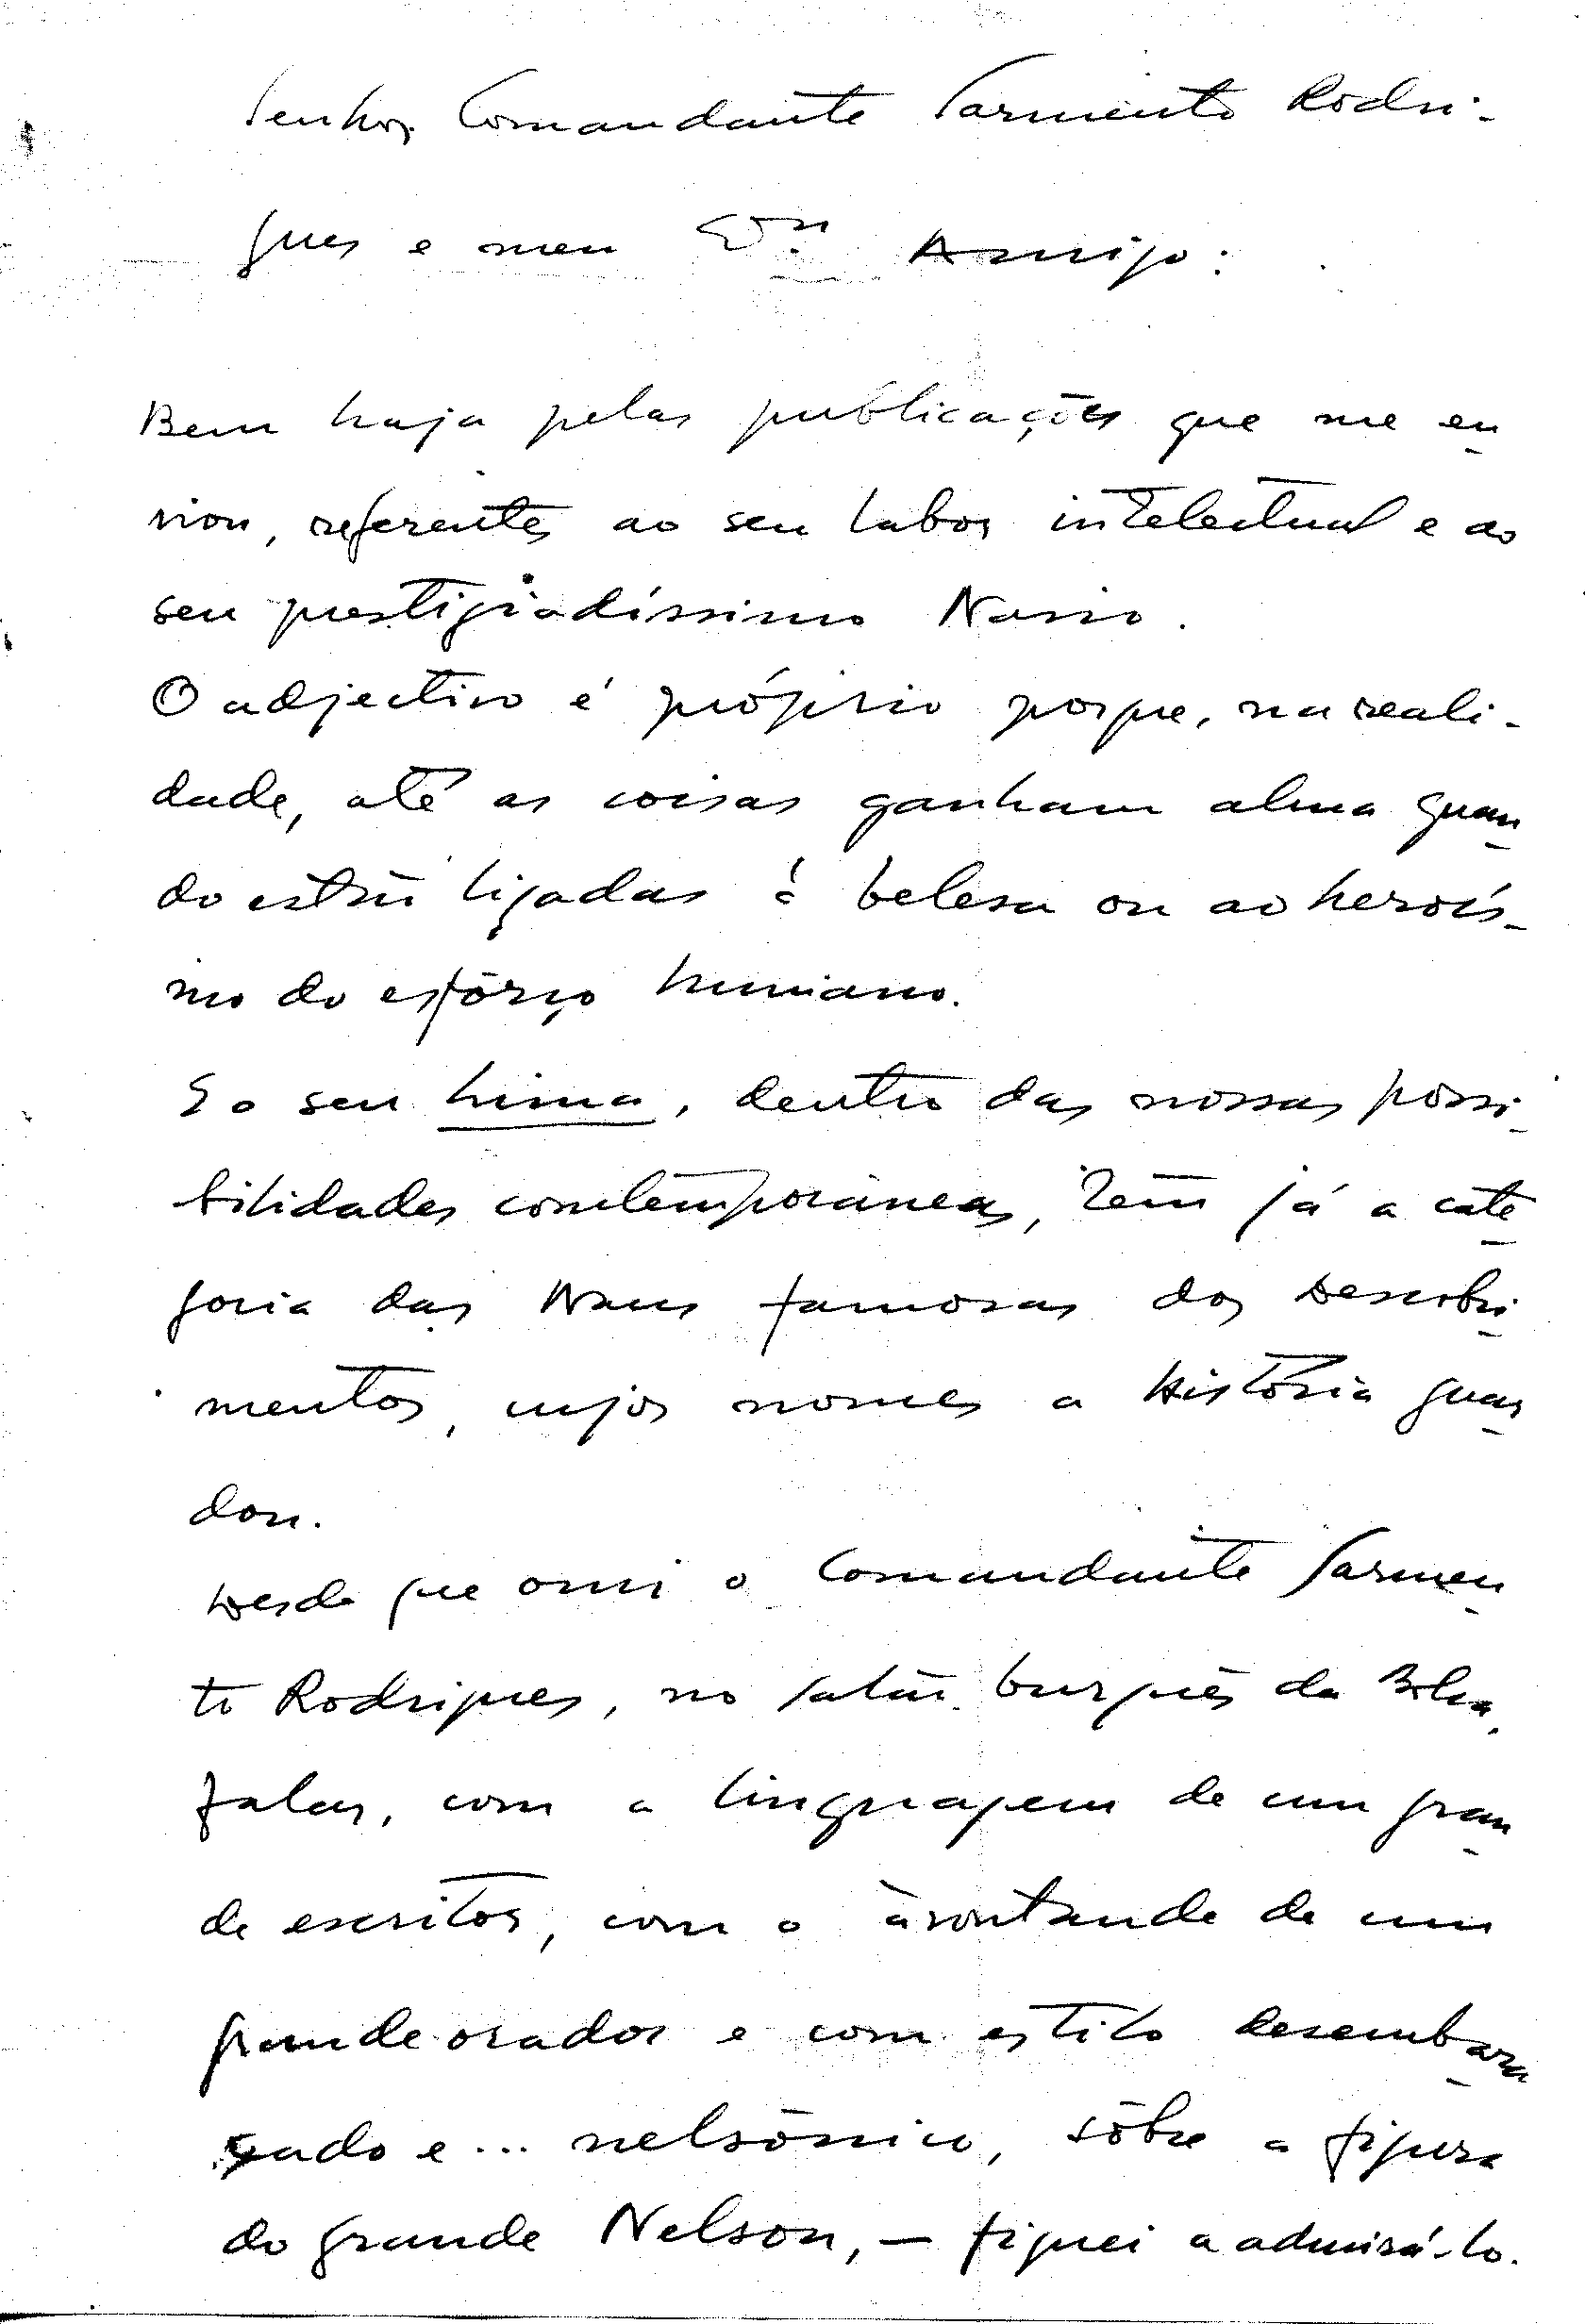 Senhor Comandante Sarmento Rodri-
gues e meu Exmo. Amigo:
Bem haja pelas publicações que me en-
viou, referentes ao seu labor intelectual e ao
seu prestigiadíssimo Navio.
O adjectivo é próprio porque, na reali-
dade, até as coisas ganham alma quan-
do estão ligadas à belesa ou ao heroís-
mo do esfôrço humano.
E o seu Lima, dentro das nossas possi-
bilidades contemporâneas, tem já a cate-
goria das Naus famosas dos Descobri-
mentos, cujos nomes a História guar-
dou.
Desde que ouvi o Comandante Sarmen-
to Rodrigues, no salão burguês da Bolsa,
falar, com a linguagem de um gran-
de escritor, com o àvontande de um
grande orador e com estilo desembara-
çado e... nelsónico, sôbre a figura
do grande Nelson, — fiquei a admirá-lo.